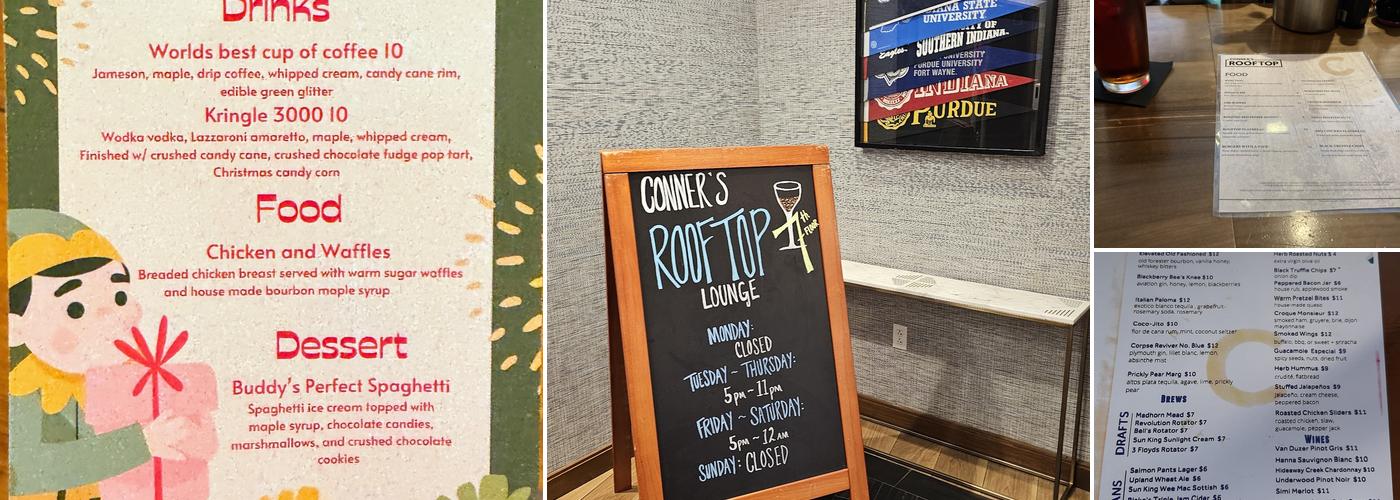 Drinks
Worlds best cup of coffee 10
Jameson, maple, drip coffee, whipped cream, candy cane rim,
edible green glitter
Kringle 3000 10
Wodka vodka, Lazzaroni amaretto, maple, whipped cream,
Finished w/ crushed candy cane, crushed chocolate fudge pop tart,
Christmas candy corn
Food
Chicken and Waffles
Breaded chicken breast served with warm sugar waffles
and house made bourbon maple syrup
Dessert
Buddy's Perfect Spaghetti
Spaghetti ice cream topped with
maple syrup, chocolate candies,
marshmallows, and crushed chocolate
cookies
INDIANA STATE
UNIVERSITY
UNIVERSITY OF
Eagles
SOUTHERN INDIANA
PURDUE UNIVERSITY
FORT WAYNE
INDIANA
PURDUE
CONNER'S
ROOFTOP
7th
FLOOR
LOUNGE
MONDAY:
CLOSED
TUESDAY ~ THURSDAY:
5pm - 11pm
FRIDAY ~ SATURDAY:
5pm ~ 12am
SUNDAY: CLOSED
ROOFTOP
FOOD
Elevated Old Fashioned $12
old forester bourbon, vanilla honey,
whiskey bitters
Blackberry Bee's Knee $10
aviation gin, honey, lemon, blackberries
Italian Paloma $12
exotico blanco tequila, grapefruit,
rosemary soda, rosemary
Coco-Jito $10
flor de cana rum, mint, coconut seltzer
Corpse Reviver No. Blue $12
plymouth gin, lillet blanc, lemon,
absinthe mist
Prickly Pear Marg $10
altos plata tequila, agave, lime, prickly
pear
BREWS
DRAFTS
Madhorn Mead $7
Revolution Rotator $7
Bell's Rotator $7
Sun King Sunlight Cream $7
3 Floyds Rotator $7
Salmon Pants Lager $6
Upland Wheat Ale $6
Sun King Wee Mac Scottish $6
Herb Roasted Nuts $4
extra virgin olive oil
Black Truffle Chips $7
onion dip
Peppered Bacon Jar $6
house rub, applewood smoke
Warm Pretzel Bites $11
house made queso
Croque Monsieur $12
smoked ham, gruyere, brie, dijon
mayonnaise
Smoked Wings $12
buffalo, bbq, or sweet + sriracha
Guacamole Especial $9
spicy seeds, nuts, dried fruit
Herb Hummus $9
crudité, flatbread
Stuffed Jalapeños $9
jalapeño, cream cheese,
peppered bacon
Roasted Chicken Sliders $11
roasted chicken, slaw,
guacamole, pepper jack
WINES
Van Duzer Pinot Gris $11
Hanna Sauvignon Blanc $10
Hideaway Creek Chardonnay $10
Underwood Pinot Noir $10
Simi Merlot $11